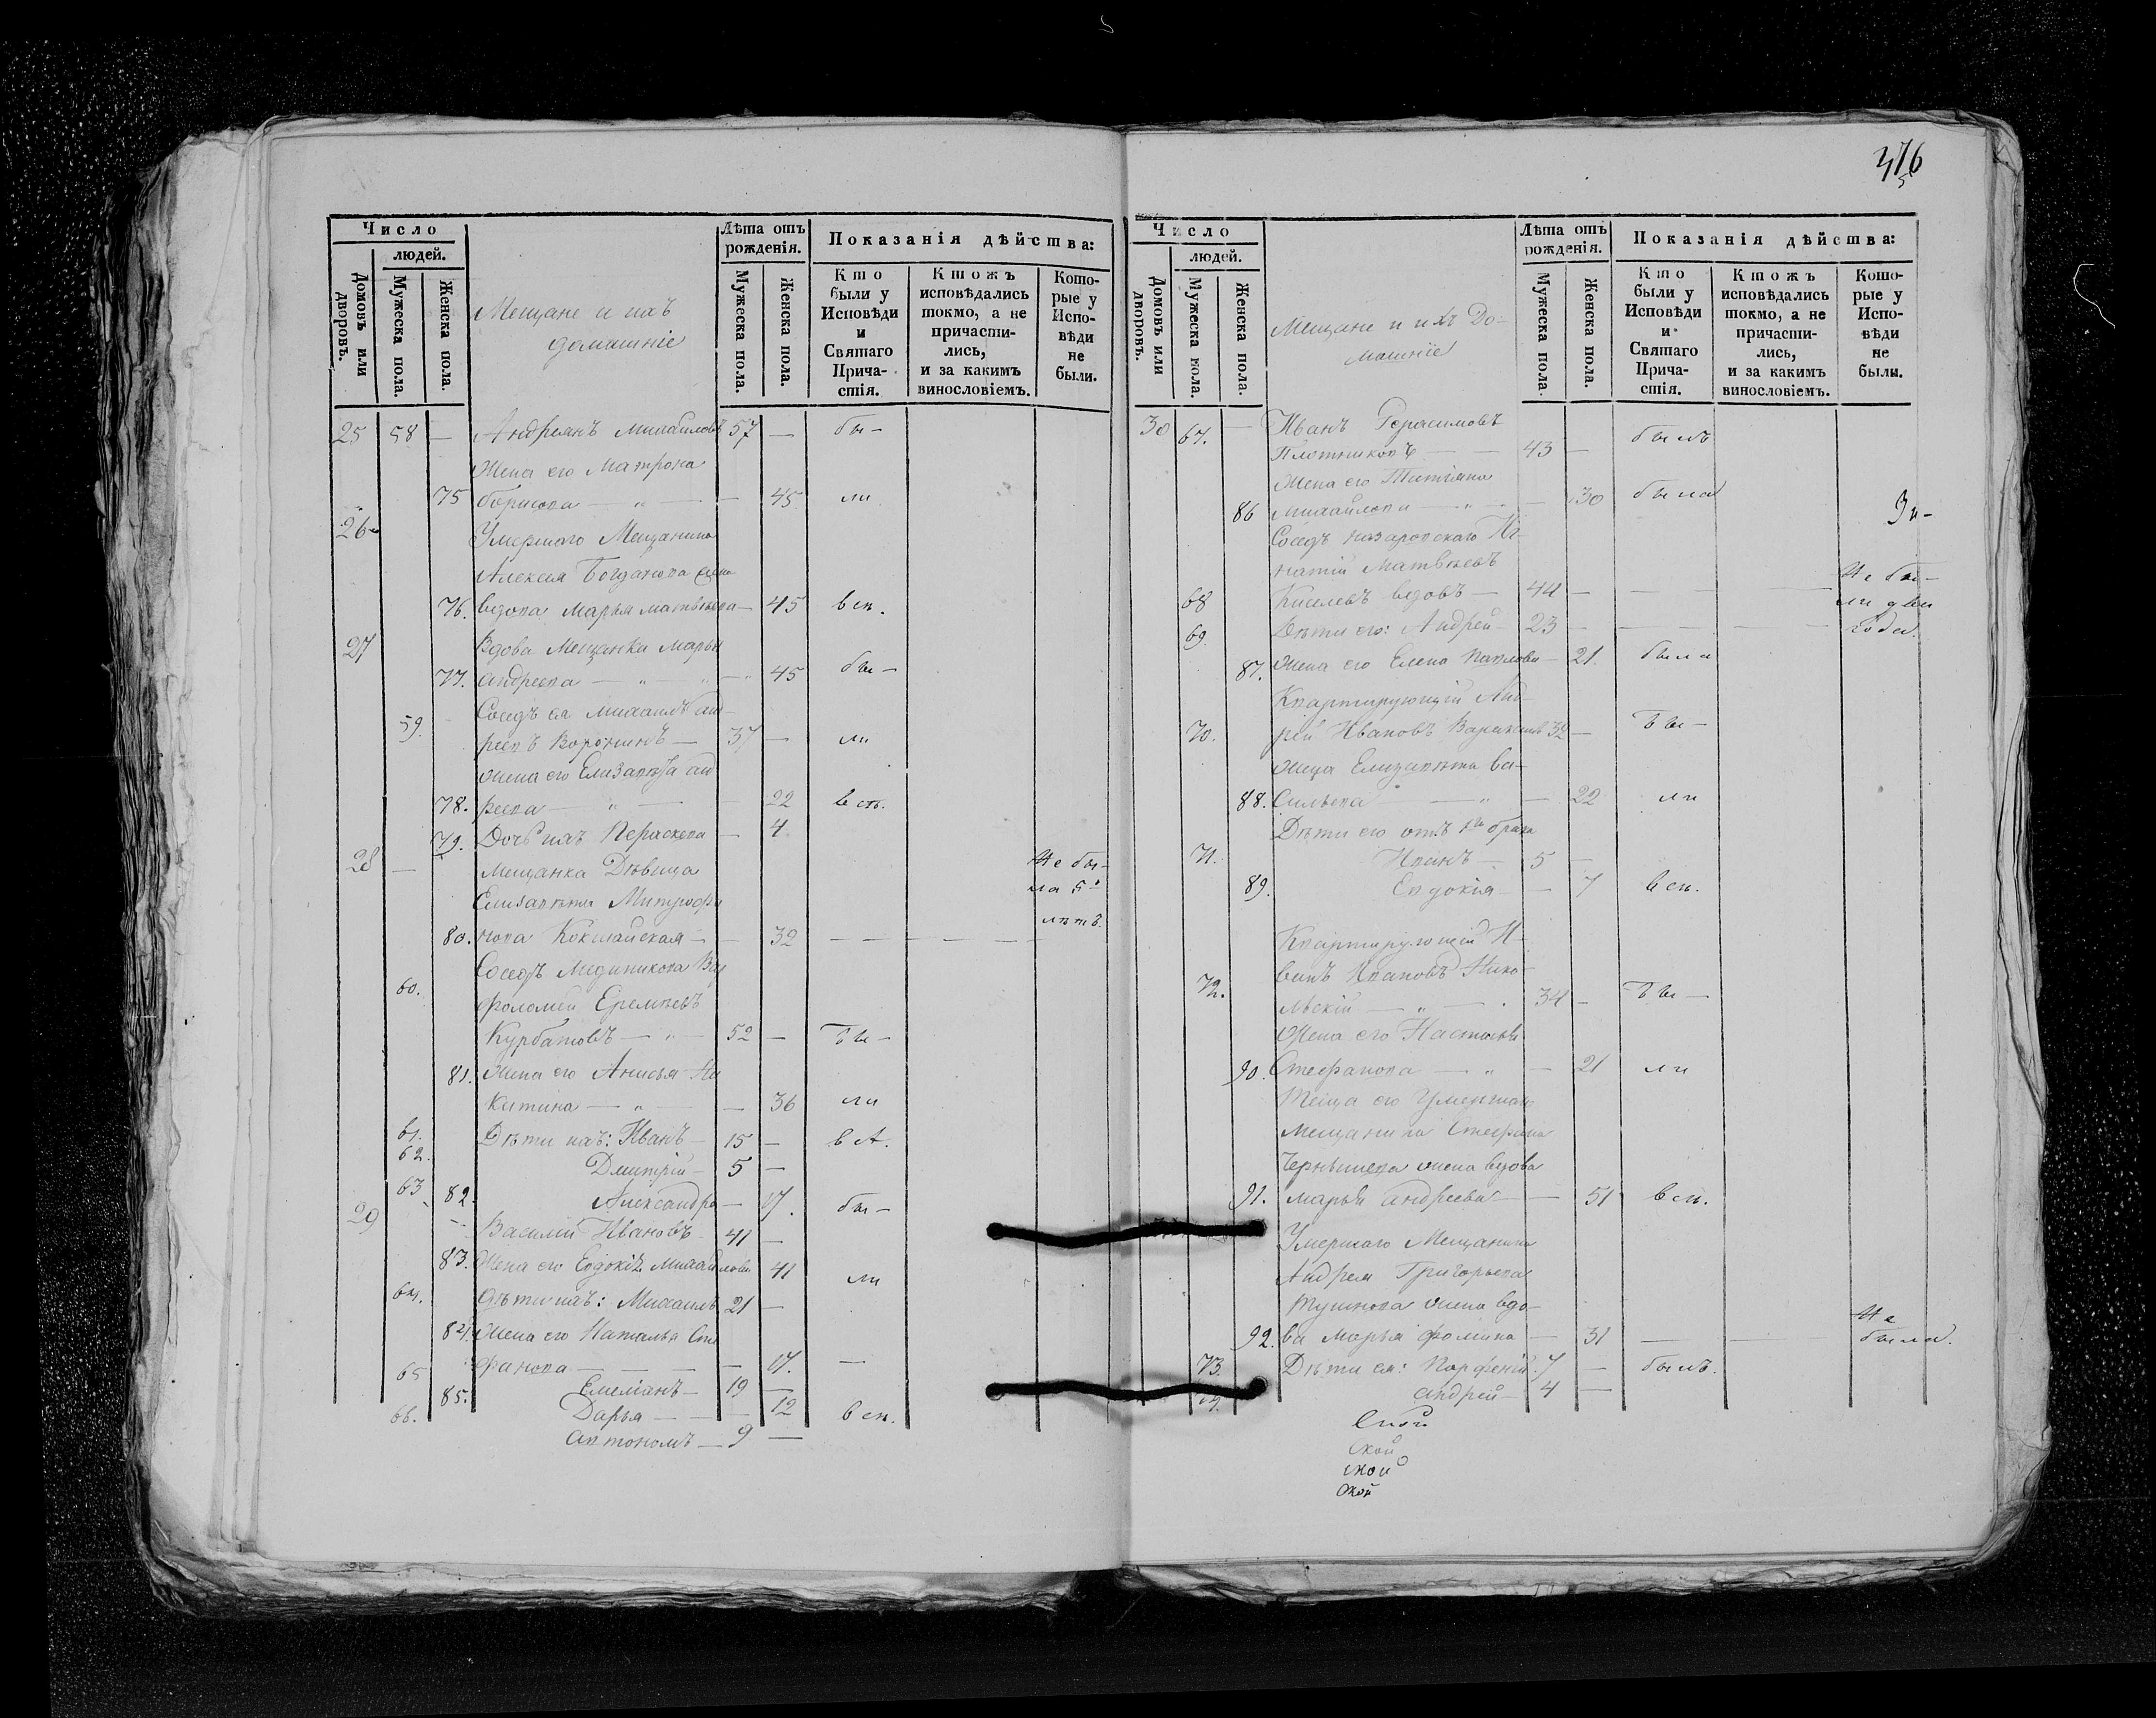 476
5
Число
людей.
Домовъ или дворовъ.
Мужеска пола.
Женска пола.
Мещане и ихъ
домашніе
Лѣта отъ рожденія.
Мужеска пола.
Женска пола.
Показанія дѣйства:
Кто были у Исповѣди и Святаго Прича- стія.
Ктожъ исповѣдались токмо, а не причасти- лись, и за какимъ винословіемъ.
Кото- рые у Испо- вѣди не были.
25 58 — Андреянъ Михайловъ 57 — бы-
Жена его Матрона
75 борисова — „ — — 45 ли
26 Умершаго Мещанина
Алексея Богданова жена
76. вдова Марья матвѣева — 45 всп.
27 Вдова Мещанка Марья
77. андреева — „ — „ 45 бы-
Соседъ ея михаилъ ан-
59. реевъ Воронинъ — 37 — ли
жена его Елизавета ан
78. реева — „ — — 22 всп.
79. Дочь ихъ Параскева — 4
28 — Мещанка Дѣвица Не бы-
Елизавета Митрофа ла 5
80. нова Кокшайская — — 32 — — — — лѣтъ
Соседъ Медникова Вар
60. фоломей Еремѣевъ
Курбатовъ — „ — 52 — Бы-
81. жена его Анисья Ни
китина — „ — — 36 ли
61. Дѣти ихъ: Иванъ — 15 — вс.
62. Дмитрій — 5 —
82. Александра — 17. бы-
29 63 Василій Ивановъ 41 —
83. Жена его Евдокія Михайлова 41 ли
64. Дѣти ихъ: Михаилъ 21 —
84. Жена его Наталья Сте
фанова — — — — 17. —
65 Емеліанъ — 19 —
85. Дарья — — — 12 всп.
66. Антономъ — 9 —
Число
людей.
Домовъ или дворовъ.
Мужеска пола.
Женска пола.
Мещане и ихъ До-
машніе
Лѣта отъ рожденія.
Мужеска пола.
Женска пола.
Показанія дѣйства:
Кто были у Исповѣди и Святаго Прича- стія.
Ктожъ исповѣдались токмо, а не причасти- лись, и за какимъ винословіемъ.
Кото- рые у Испо- вѣди не были.
30 67. — Иванъ Герасимовъ
Плотниковъ — — 43 — былъ
Жена его Татіяна
86 михайлова — „ — — 30 была
Соседъ назаровскаго Иг-
натій Матвѣевъ Не бы-
68 Киселевъ вдовъ — 44 — — — — ли два
69. Дѣти его: Андрей — 23 — — — — года.
87. жена его Елена павлова — 21. была
Квартирующій Анд-
70. рей Ивановъ 32 — Бы-
жена Елизавета ва-
88. сильева — „ — 22 ли
Дѣти его отъ 1го брака
71. Иванъ — 5 —
89. Евдокія — — 7 всп.
Квартирующій И-
72. ванъ Ивановъ Нико-
льскій — „ — 34 — Бы-
Жена его Настасья
90. Стефанова — „ — 21 ли
Теща его Умершаго
мещанина Стефана
Чернышева жена вдова
91. марья андреева — — 51 всп.
Умершаго Мещанина
Андрея Григорьева
жена вдо- Не
92. ва марья фомина — 31 — — была.
73. Дѣти ея: Парфеній. 7 — былъ.
74. андрей — 4 —
ской
ской
ской